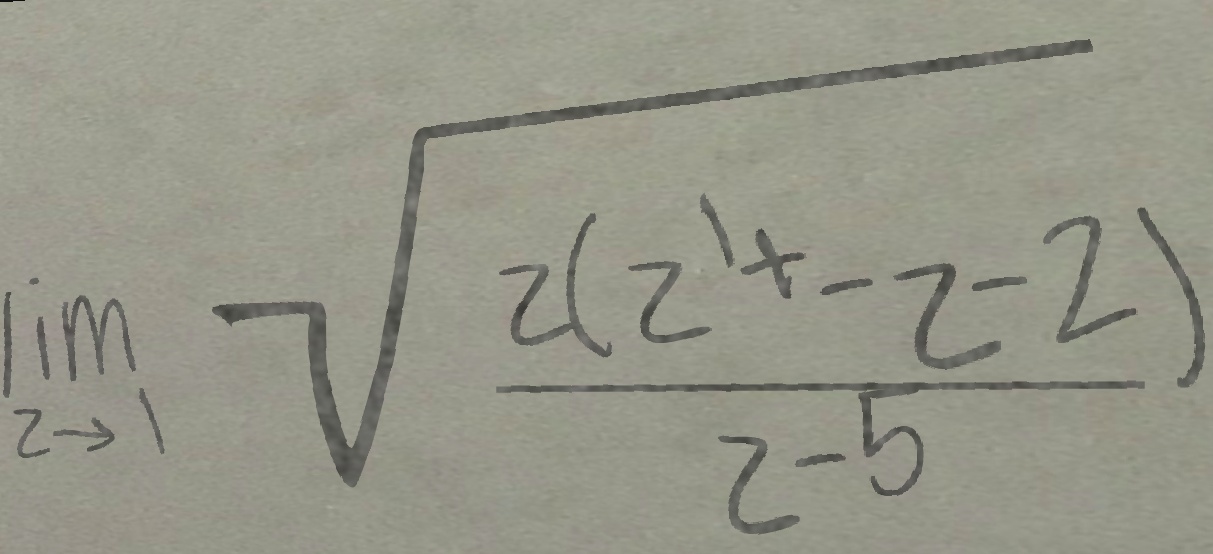 \lim_{z \to 1} \sqrt{\frac{z(z^{14} - z - 2)}{z - 5}}